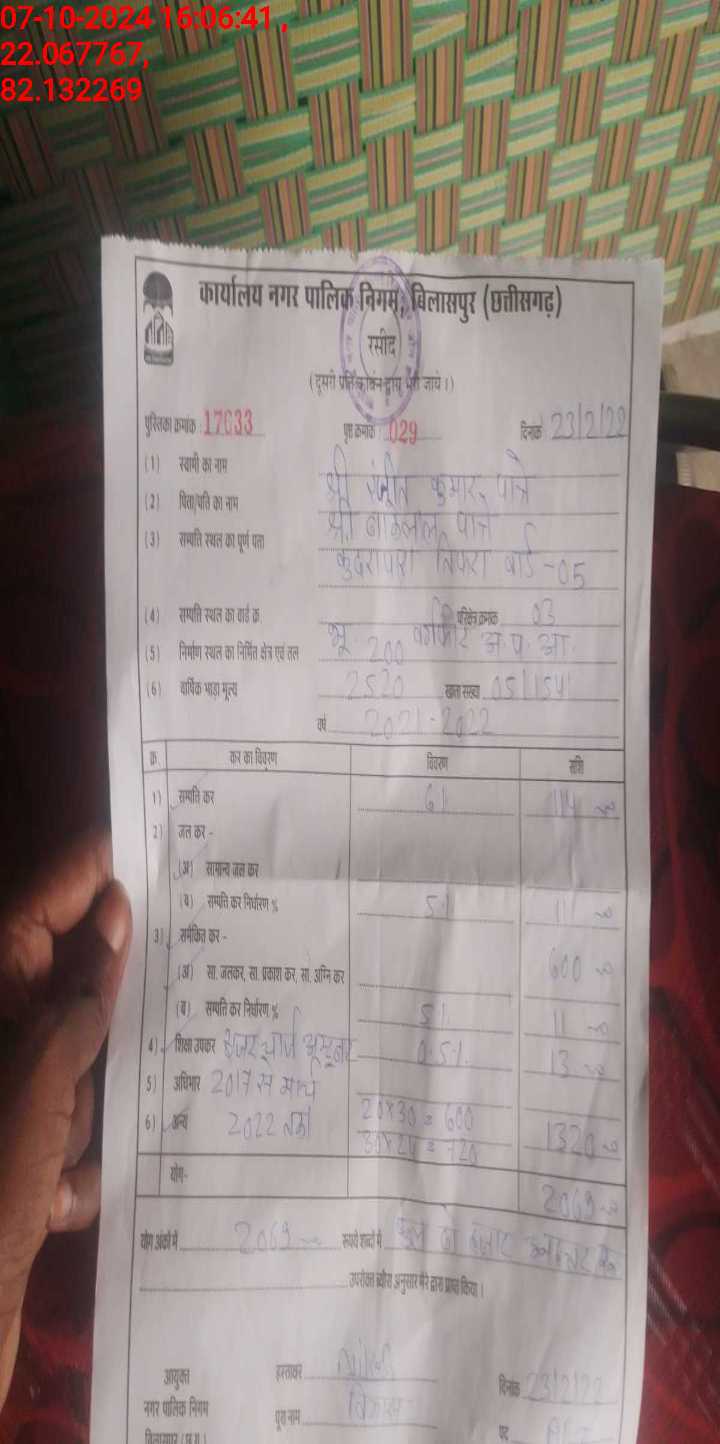 07-10-2024 16:06:41,
22.067767,
82.132269
कार्यालय नगर पालिक निगम, बिलासपुर (छत्तीसगढ़)
रसीद
(दूसरी प्रति कार्बन द्वारा भरी जाये।)
पुस्तिका क्रमांक 17633 पृष्ठ क्रमांक 029 दिनांक 23/2/22
(1) स्वामी का नाम श्री रंजीत कुमार पात्रे
(2) पिता/पति का नाम श्री पात्रे
(3) सम्पति स्थल का पूर्ण पता कुदरापारा तिफरा वार्ड -05
(4) सम्पति स्थल का वार्ड क्र. परिक्षेत्र क्रमांक 03
(5) निर्माण स्थल का निर्मित क्षेत्र एवं तल भू. 200 वर्गफीट अ. प. आ.
(6) वार्षिक भाड़ा मूल्य 2520 खाता संख्या 05/1541
वर्ष 2021-2022
क्र. कर का विवरण विवरण राशि
1) सम्पति कर 6% 114
2) जल कर -
(अ) सामान्य जल कर
(ब) सम्पति कर निर्धारण % 5% 11
3) समेकित कर -
(अ) सा. जलकर, सा. प्रकाश कर, सा. अग्नि कर 600
(ब) सम्पति कर निर्धारण % 5% 11
4) शिक्षा उपकर यूजर चार्ज अक्टूबर 0.5% 13
5) अधिभार 2017 से मार्च
6) अन्य 2022 तक 20x30 = 600 1320
30x24 = 720
योग- 2069
योग अंकों में 2069 रूपये शब्दों में दो हजार
उपरोक्त ब्यौरा अनुसार मेरे द्वारा प्राप्त किया।
आयुक्त हस्ताक्षर दिनांक 23/2/22
नगर पालिक निगम पूरा नाम विकास पद
बिलासपुर (छ.ग.)